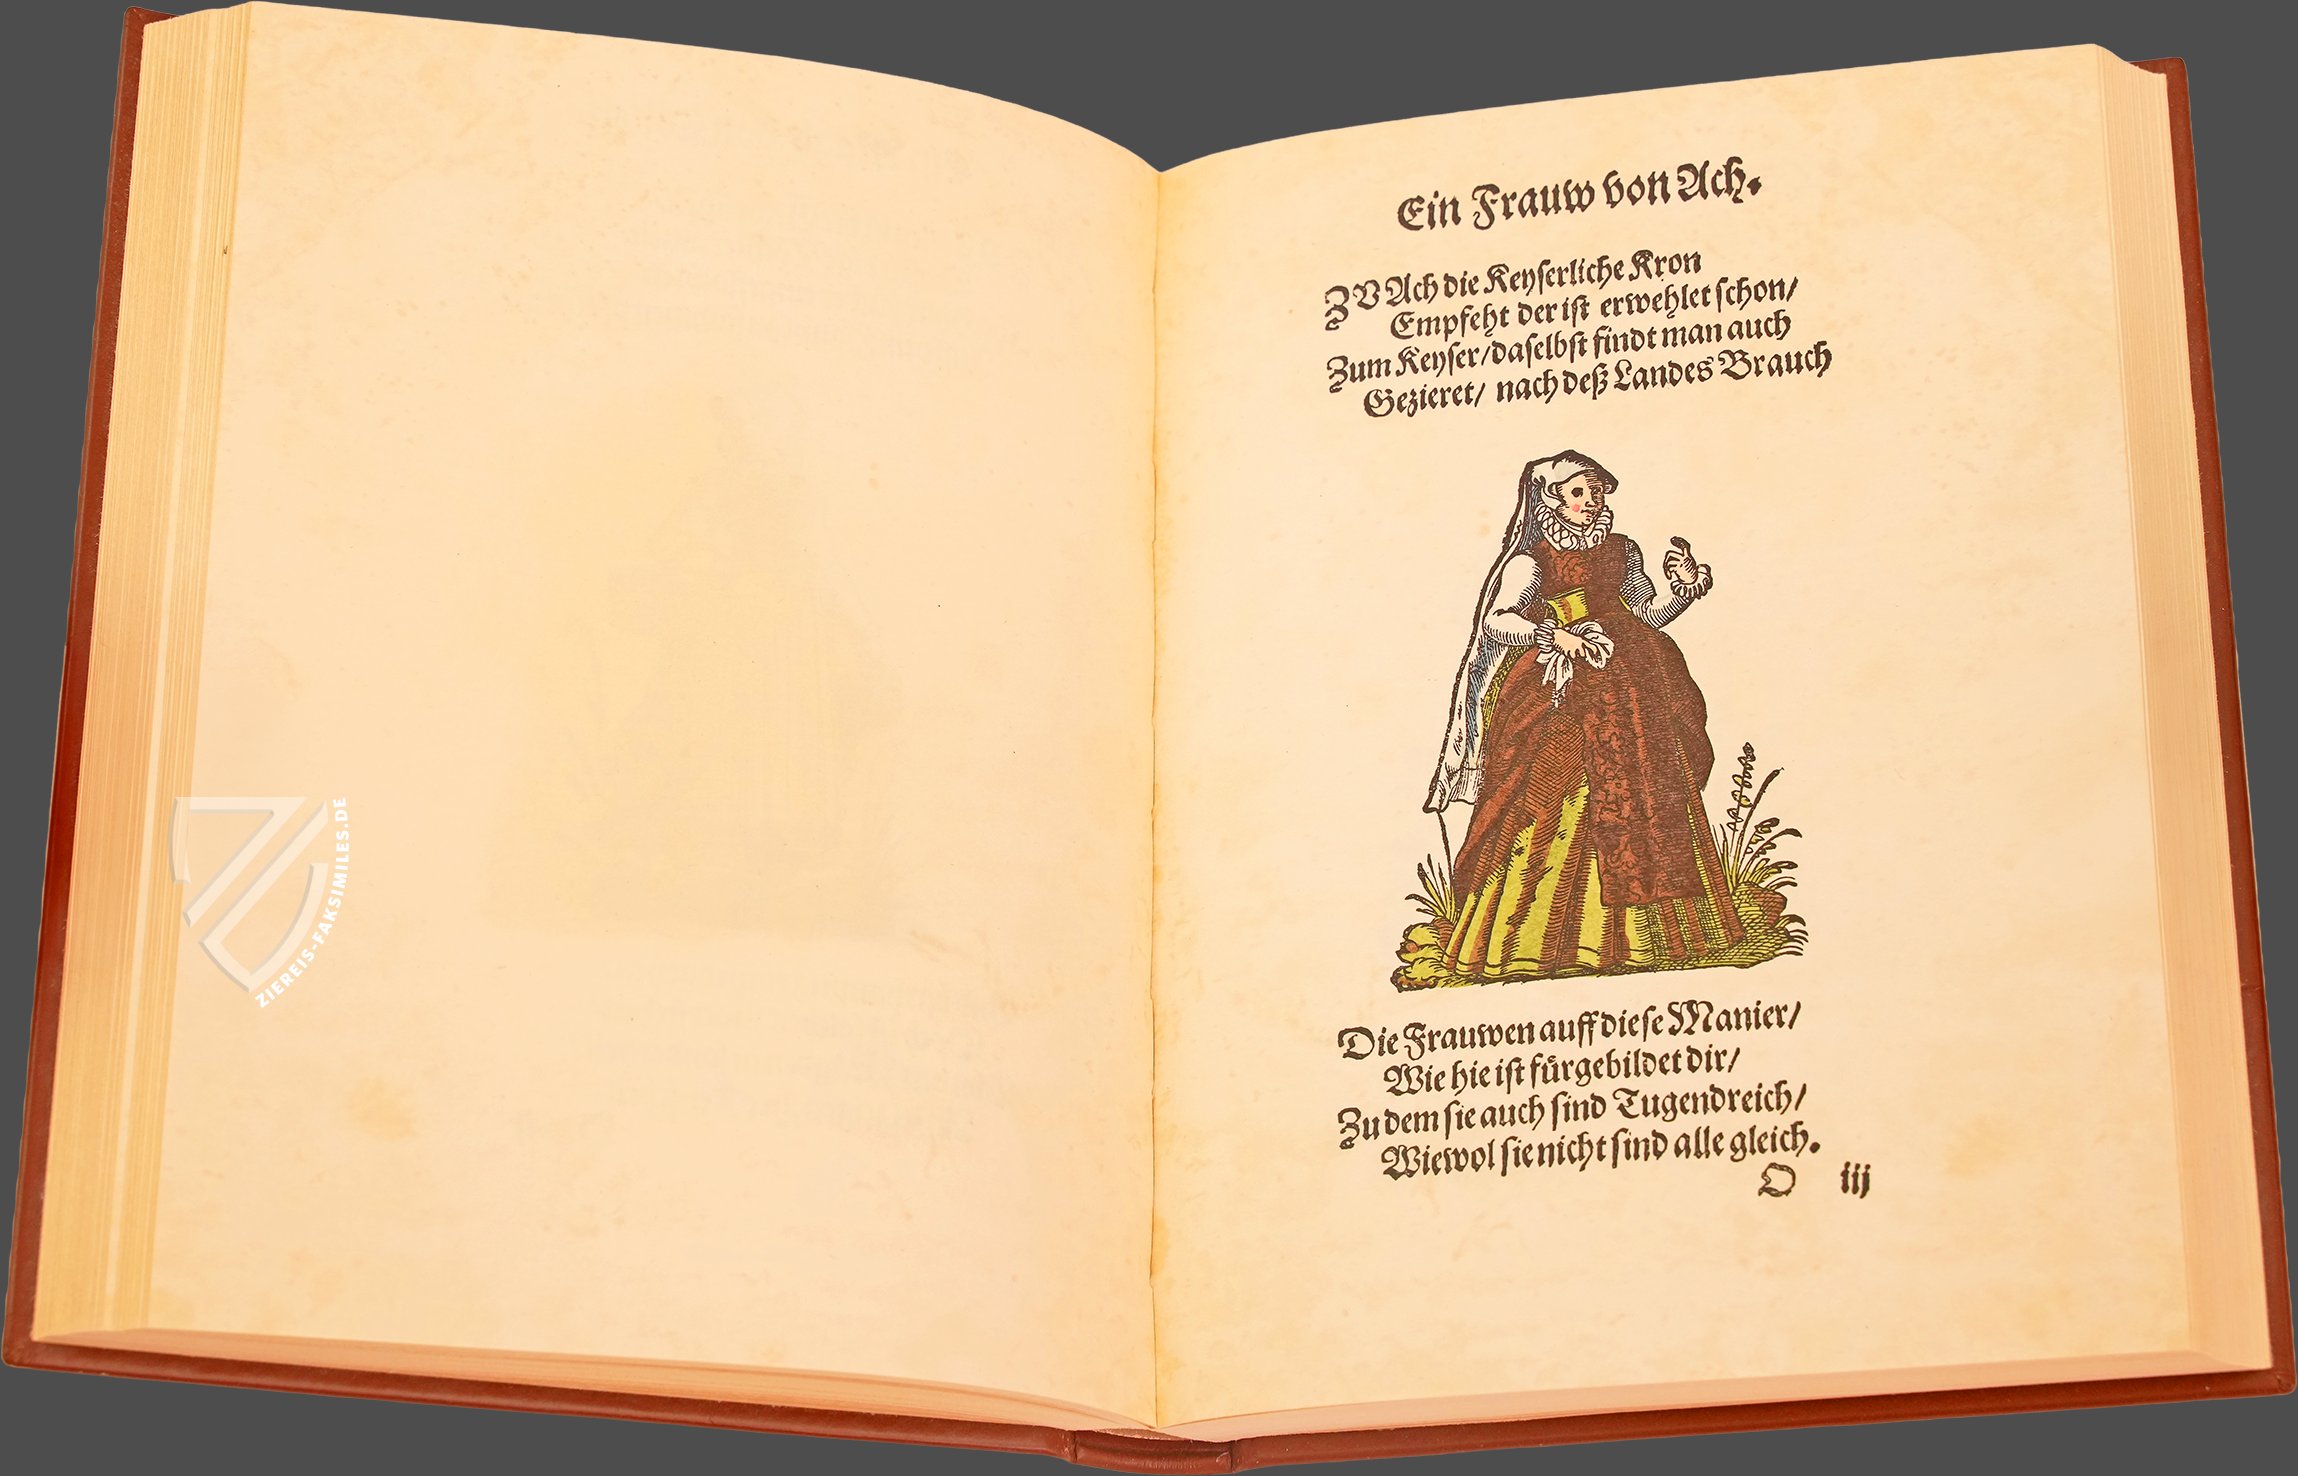 ZIEREIS-FAKSIMILES.DE
Ein Frauw von Ach.
ZV Ach die Keyſerliche Kron
Empfeht der iſt erwehlet ſchon/
Zum Keyſer/daſelbſt findt man auch
Gezieret/ nach deß Landes Brauch
Die Frauwen auff dieſe Manier/
Wie hie iſt fuͤrgebildet dir/
Zu dem ſie auch ſind Tugendreich/
Wiewol ſie nicht ſind alle gleich.
O iij